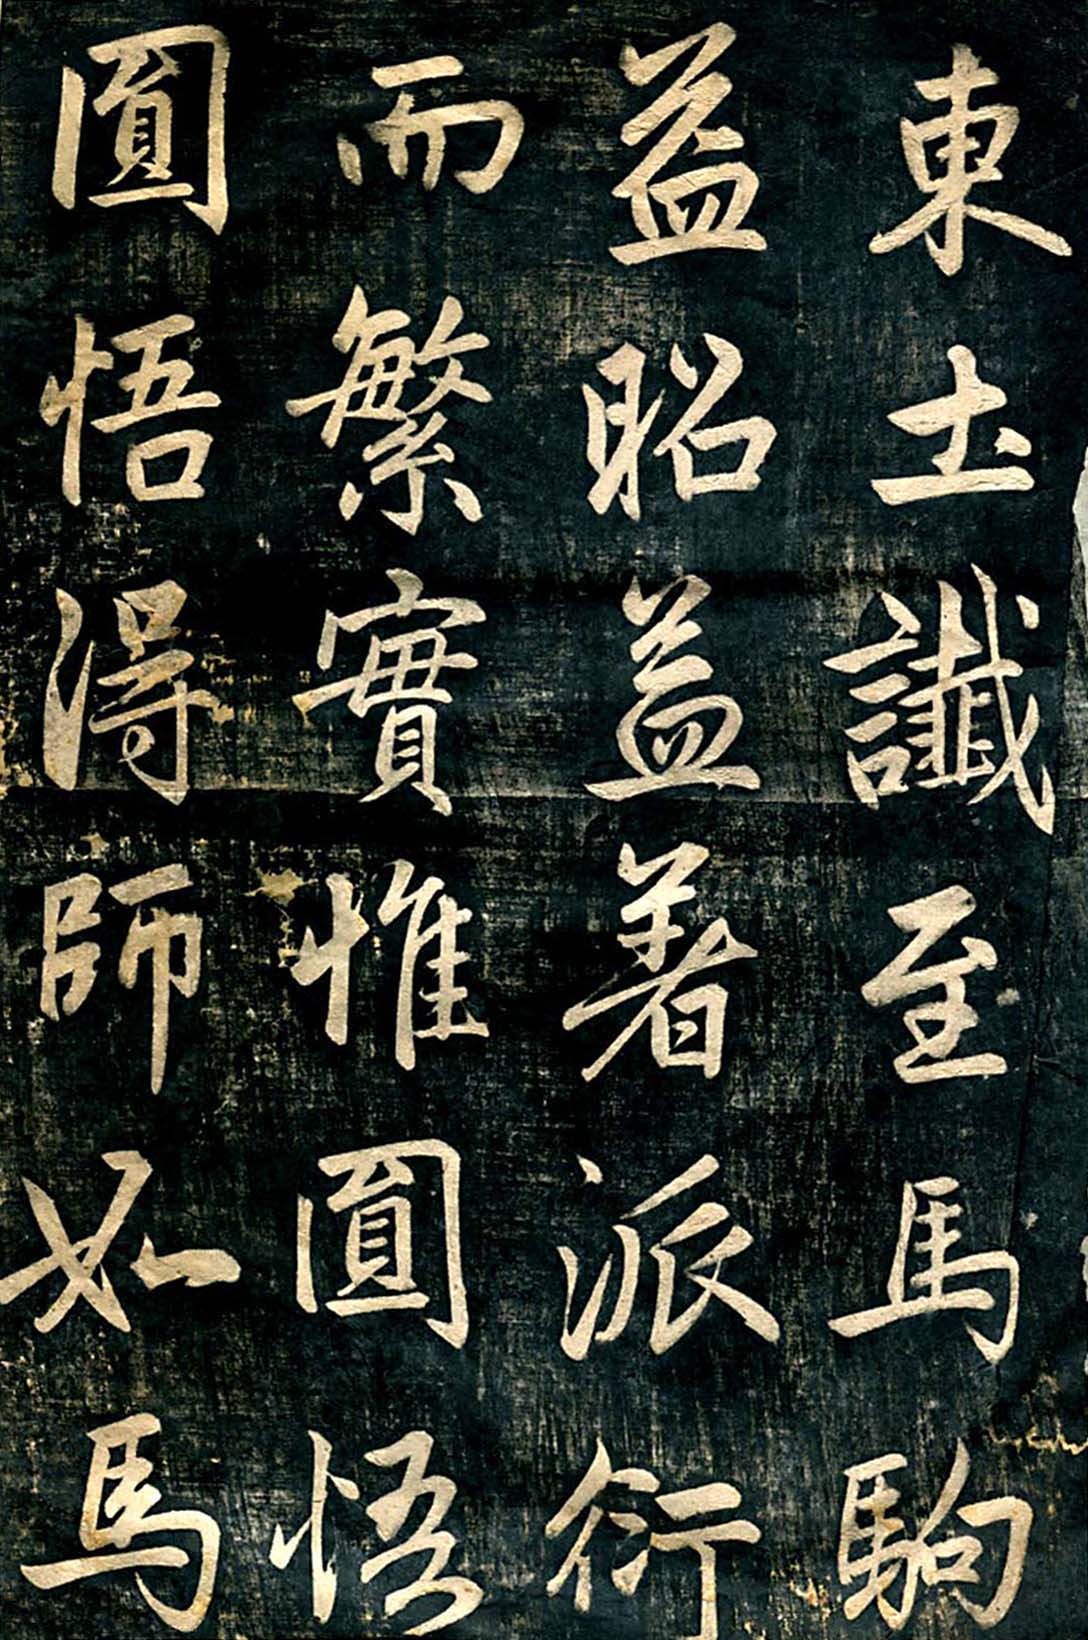 東土讖至馬駒
益昭益著派衍
而繁實惟圓悟
圓悟得師如馬